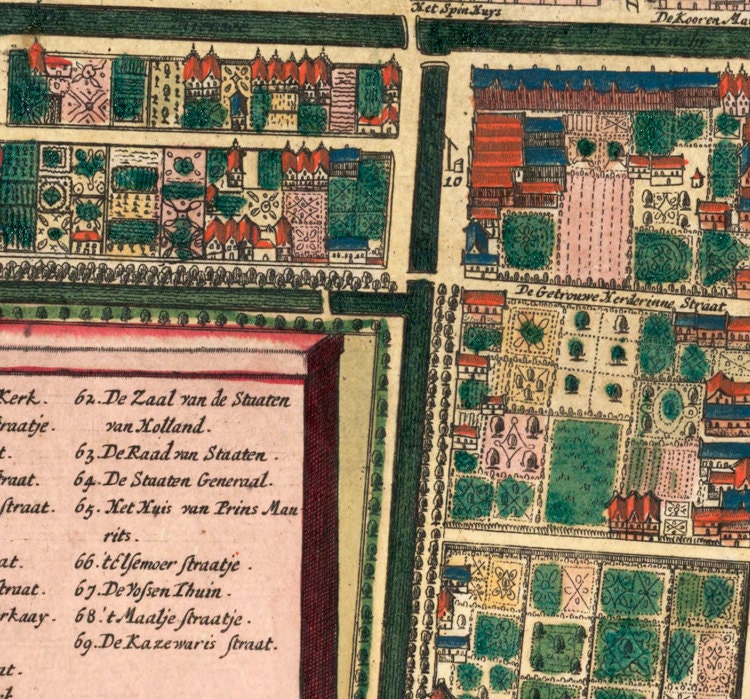 Het Spin Huys
De Kooren Ma
10
De Getrouwe Herderinne Straat
Kerk.
raatje.
t.
raat.
straat.
at.
straat.
rkaay.
at.
62. De Zaal van de Staaten
van Holland.
63. De Raad van Staaten.
64. De Staaten Generaal.
65. Het Huis van Prins Mau
rits.
66. 't Elsemoer straatje.
67. De Vossen Thuin.
68. 't Maalje straatje.
69. De Kazewaris straat.